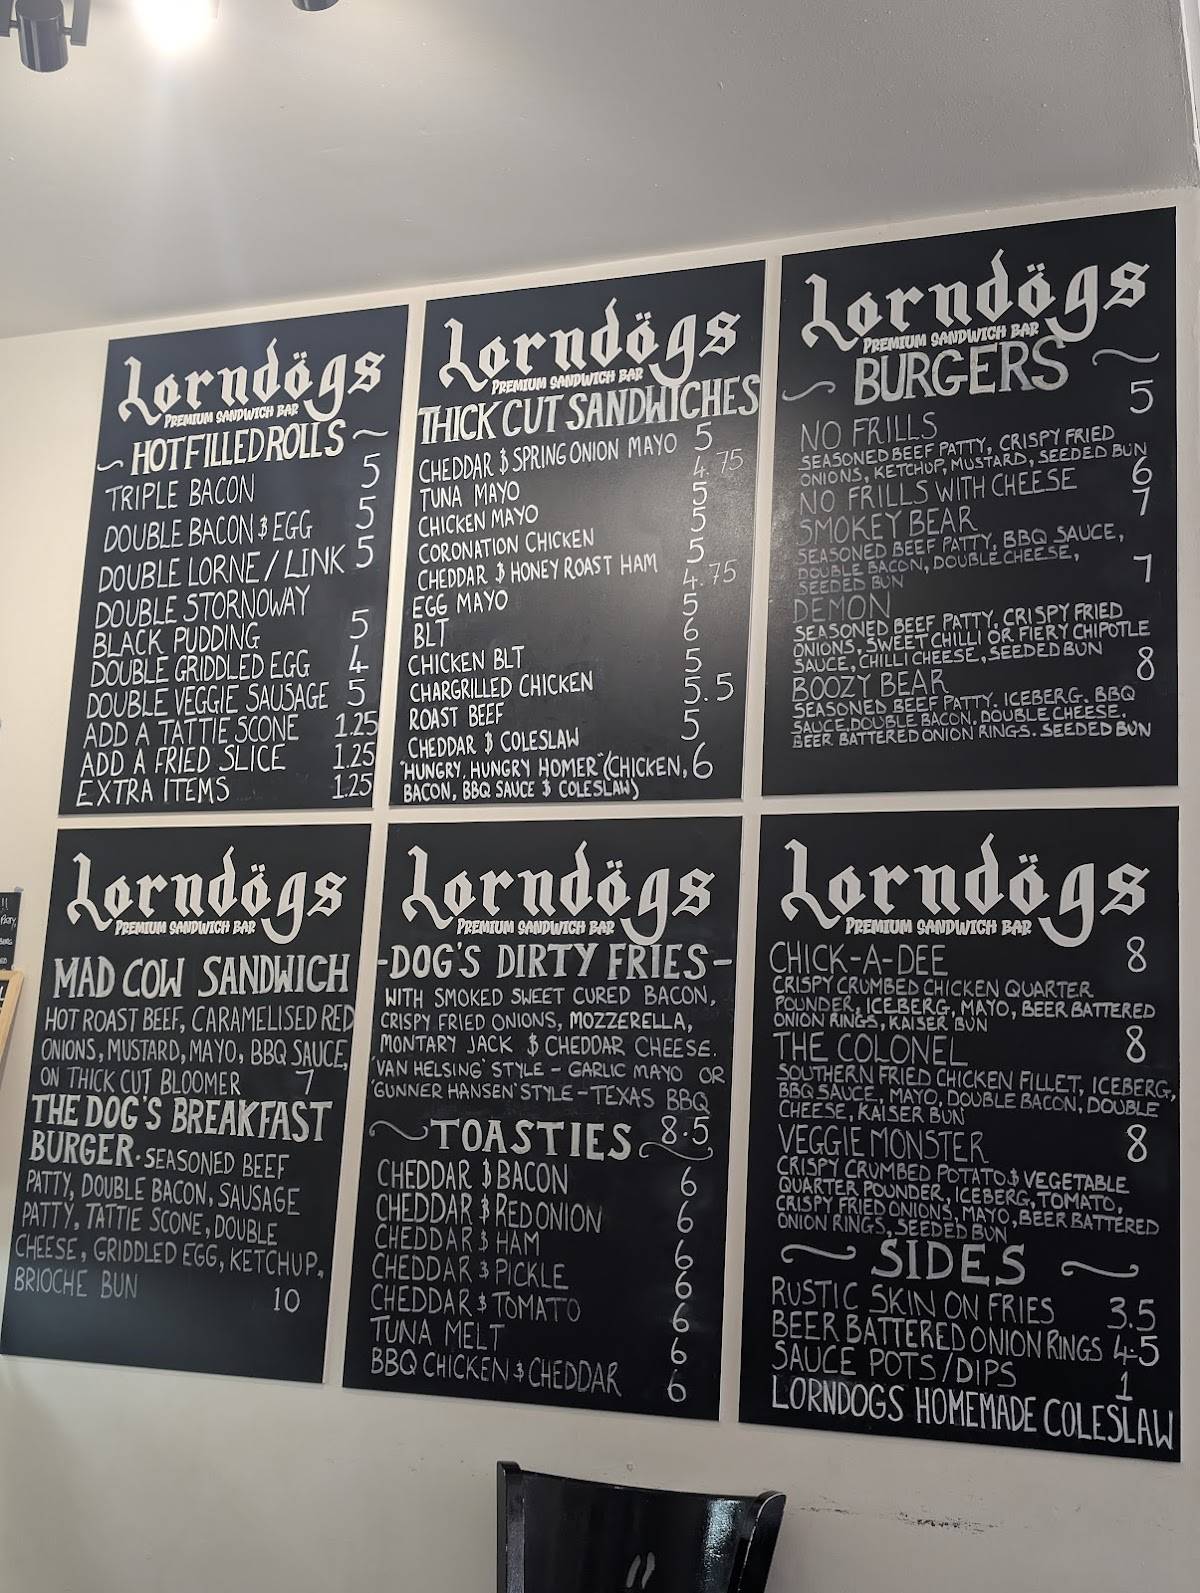 Lorndögs
PREMIUM SANDWICH BAR
HOT FILLED ROLLS
TRIPLE BACON 5
DOUBLE BACON & EGG 5
DOUBLE LORNE / LINK 5
DOUBLE STORNOWAY
BLACK PUDDING 5
DOUBLE GRIDDLED EGG 4
DOUBLE VEGGIE SAUSAGE 5
ADD A TATTIE SCONE 1.25
ADD A FRIED SLICE 1.25
EXTRA ITEMS 1.25
Lorndögs
PREMIUM SANDWICH BAR
THICK CUT SANDWICHES
CHEDDAR & SPRING ONION MAYO 5
TUNA MAYO 4.75
CHICKEN MAYO 5
CORONATION CHICKEN 5
CHEDDAR & HONEY ROAST HAM 5
EGG MAYO 4.75
BLT 5
CHICKEN BLT 6
CHARGRILLED CHICKEN 5
ROAST BEEF 5.5
CHEDDAR & COLESLAW 5
"HUNGRY, HUNGRY HOMER" (CHICKEN, 6
BACON, BBQ SAUCE & COLESLAW)
Lorndögs
PREMIUM SANDWICH BAR
BURGERS
NO FRILLS 5
SEASONED BEEF PATTY, CRISPY FRIED
ONIONS, KETCHUP, MUSTARD, SEEDED BUN
NO FRILLS WITH CHEESE 6
SMOKEY BEAR 7
SEASONED BEEF PATTY, BBQ SAUCE,
DOUBLE BACON, DOUBLE CHEESE,
SEEDED BUN
DEMON 7
SEASONED BEEF PATTY, CRISPY FRIED
ONIONS, SWEET CHILLI OR FIERY CHIPOTLE
SAUCE, CHILLI CHEESE, SEEDED BUN
BOOZY BEAR 8
SEASONED BEEF PATTY. ICEBERG. BBQ
SAUCE. DOUBLE BACON. DOUBLE CHEESE.
BEER BATTERED ONION RINGS. SEEDED BUN
Lorndögs
PREMIUM SANDWICH BAR
MAD COW SANDWICH
HOT ROAST BEEF, CARAMELISED RED
ONIONS, MUSTARD, MAYO, BBQ SAUCE,
ON THICK CUT BLOOMER 7
THE DOG'S BREAKFAST
BURGER · SEASONED BEEF
PATTY, DOUBLE BACON, SAUSAGE
PATTY, TATTIE SCONE, DOUBLE
CHEESE, GRIDDLED EGG, KETCHUP,
BRIOCHE BUN 10
Lorndögs
PREMIUM SANDWICH BAR
-DOG'S DIRTY FRIES-
WITH SMOKED SWEET CURED BACON,
CRISPY FRIED ONIONS, MOZZERELLA,
MONTARY JACK & CHEDDAR CHEESE.
'VAN HELSING' STYLE - GARLIC MAYO OR
'GUNNER HANSEN' STYLE - TEXAS BBQ
8.5
TOASTIES
CHEDDAR & BACON 6
CHEDDAR & RED ONION 6
CHEDDAR & HAM 6
CHEDDAR & PICKLE 6
CHEDDAR & TOMATO 6
TUNA MELT 6
BBQ CHICKEN & CHEDDAR 6
Lorndögs
PREMIUM SANDWICH BAR
CHICK-A-DEE 8
CRISPY CRUMBED CHICKEN QUARTER
POUNDER, ICEBERG, MAYO, BEER BATTERED
ONION RINGS, KAISER BUN
THE COLONEL 8
SOUTHERN FRIED CHICKEN FILLET, ICEBERG,
BBQ SAUCE, MAYO, DOUBLE BACON, DOUBLE
CHEESE, KAISER BUN
VEGGIE MONSTER 8
CRISPY CRUMBED POTATO & VEGETABLE
QUARTER POUNDER, ICEBERG, TOMATO,
CRISPY FRIED ONIONS, MAYO, BEER BATTERED
ONION RINGS, SEEDED BUN
SIDES
RUSTIC SKIN ON FRIES 3.5
BEER BATTERED ONION RINGS 4.5
SAUCE POTS/DIPS 1
LORNDOGS HOMEMADE COLESLAW